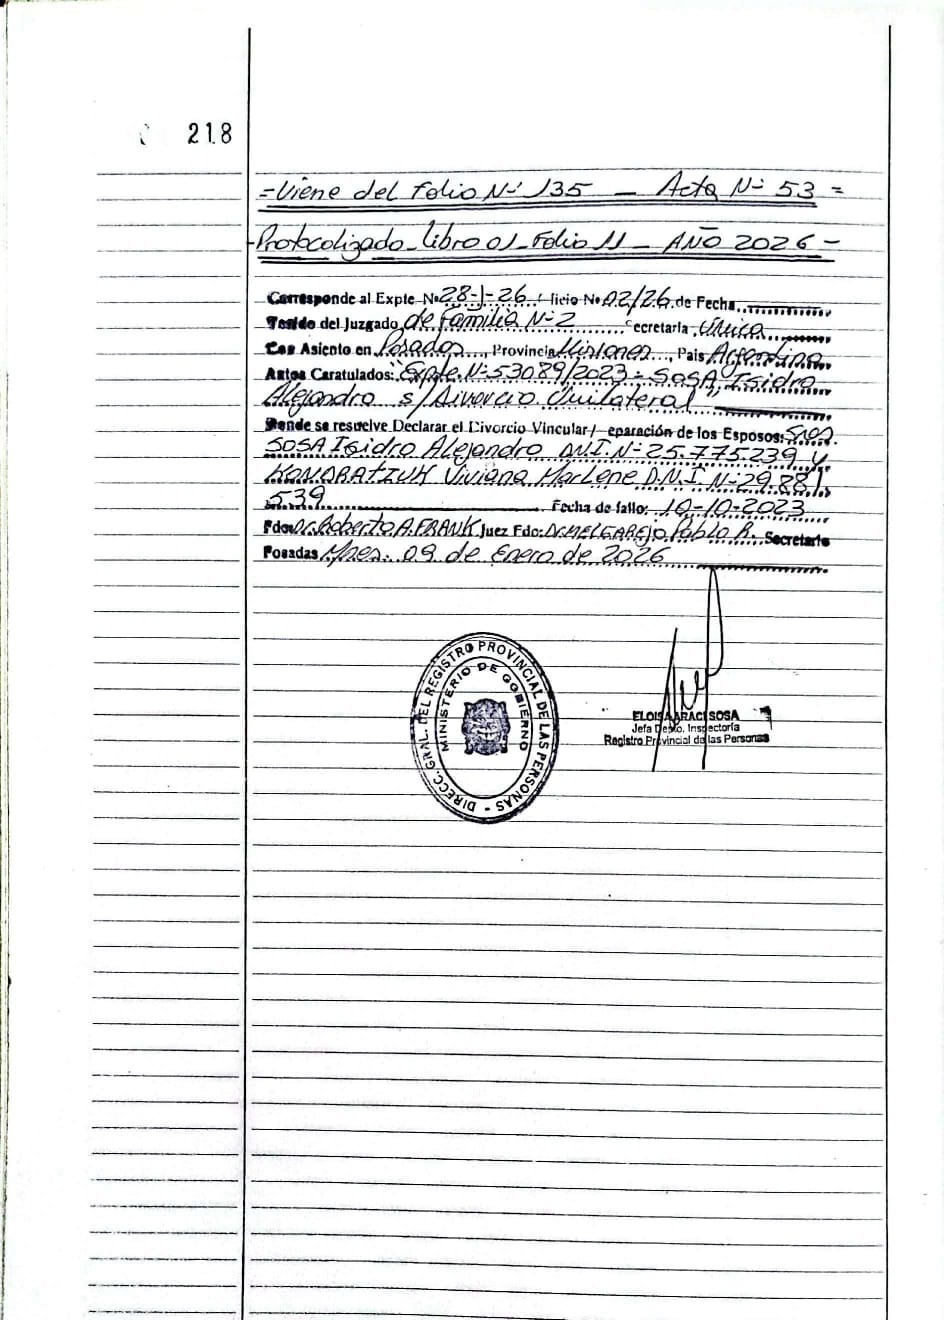 218
=Viene del Folio Nº 135 _ Acta Nº 53 =
Protocolizado_Libro 01_Folio 11 _ AÑO 2026 -
Corresponde al Expte. Nº 28-J-26 / ficio Nº 02/26 de Fecha
del Juzgado de Familia Nº 2 ecretaría Única
Con Asiento en Posadas, Provincia Misiones, Pais Argentina
Autos Caratulados: "Expte. Nº 53089/2023 - SOSA Isidro
Alejandro s/Divorcio Unilateral"
Donde se resuelve Declarar el Divorcio Vincular/ eparación de los Esposos: Sres.
SOSA Isidro Alejandro D.N.I. Nº 25.775.239 y
KONDRATIUK Viviana Marlene D.N.I. Nº 29.881.
539 Fecha de fallo: 10-10-2023
Fdo: Dr. Roberto A. FRANK Juez Fdo: Dr. MELGAREJO Pablo R. Secretario
Posadas, Mnes. 09 de Enero de 2026
DIRECC. GRAL. DEL REGISTRO PROVINCIAL DE LAS PERSONAS -
MINISTERIO DE GOBIERNO
ELOISA ARACI SOSA
Jefa Dpto. Inspectoría
Registro Provincial de las Personas